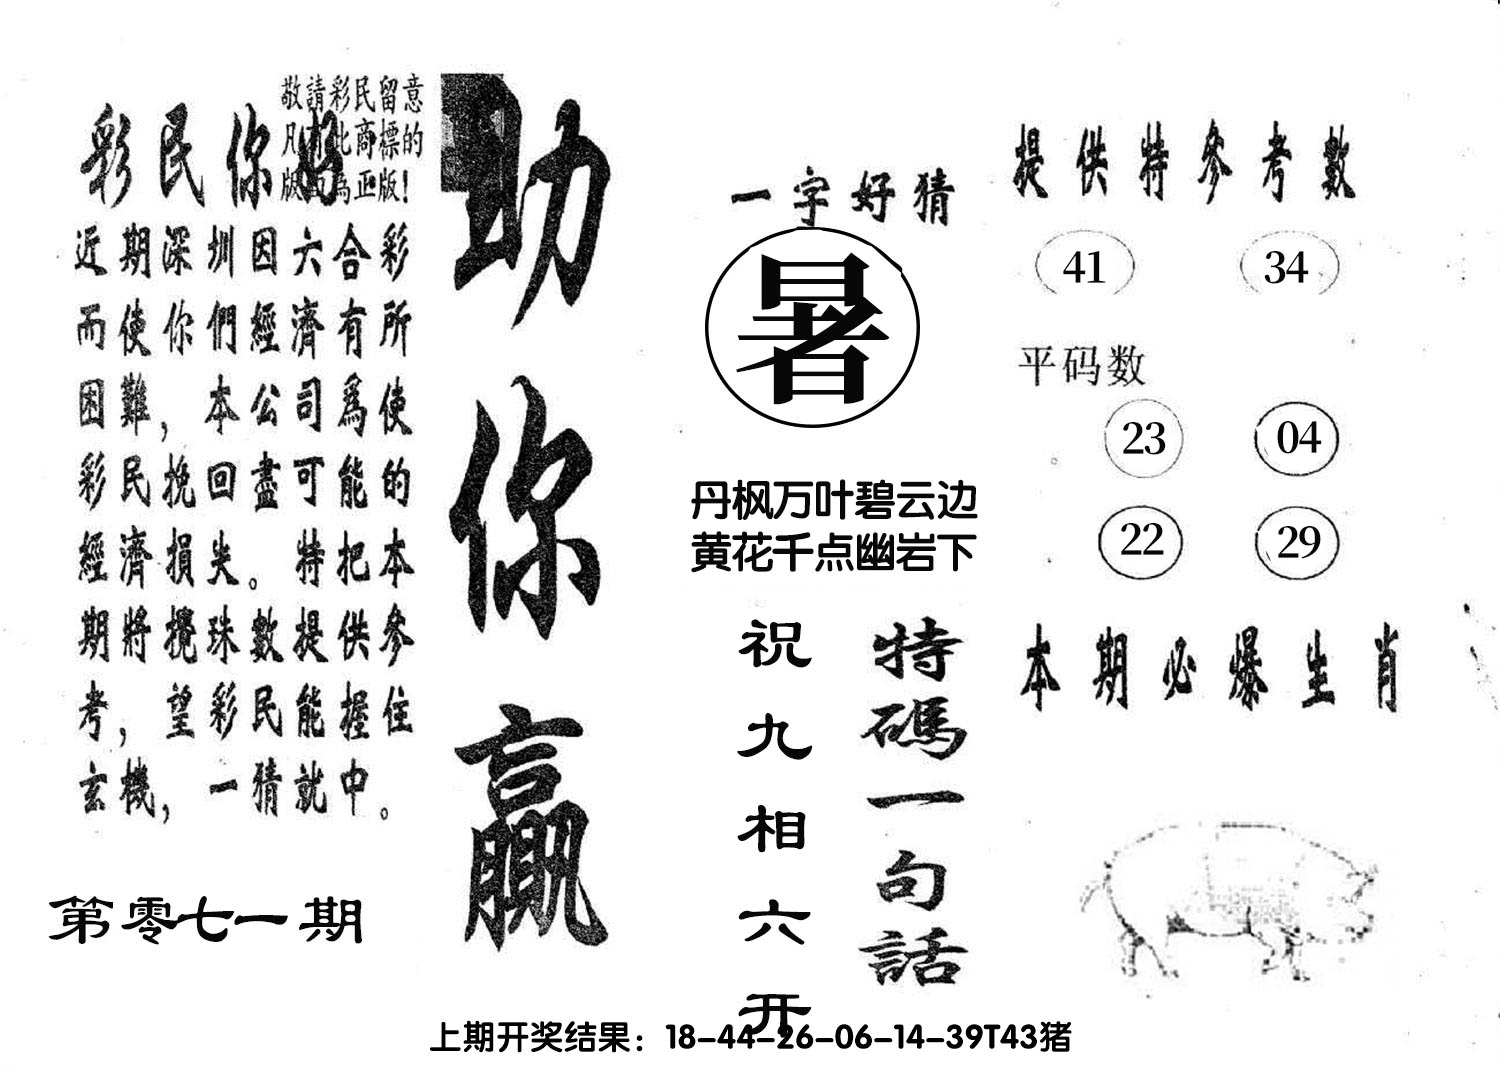 敬請彩民留意
凡有此商標的
版面為正版!
彩民你好
近期深圳因六合彩
而使你們經濟有所
困難，本公司爲使
彩民挽回盡可能的
經濟損失。特把本
期將攪珠數提供參
考，望彩民能握住
玄機，一猜就中。
第零七一期
助你贏
一字好猜
暑
丹枫万叶碧云边
黄花千点幽岩下
特碼一句話
祝九相六开
提供特參考數
41 34
平码数
23 04
22 29
本期必爆生肖
上期开奖结果：18-44-26-06-14-39T43猪